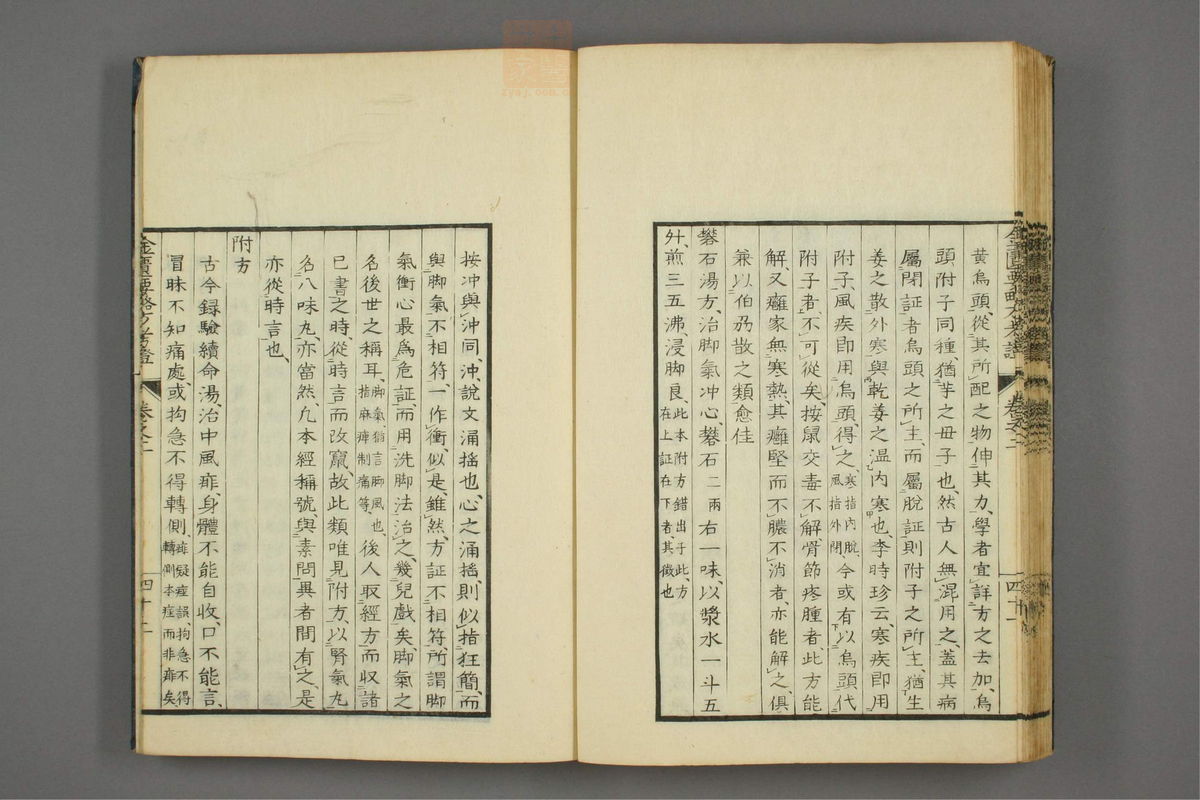 黃烏頭、從其所配之物伸其力、學者宜詳方之去加、烏
頭附子同種、猶芋之毋子也、然古人無混用之、蓋其病
屬閉証者烏頭之所主、而屬脫証則附子之所主、猶生
姜之散外寒與乾姜之溫內寒也、李時珍云、寒疾即用
附子、風疾即用烏頭、得之、寒指內脫、風指外閉、今或有以烏頭代
附子者、不可從矣、按鼠交毒不解、骨節疼腫者、此方能
解、又癰家無寒熱、其癰堅而不膿不消者、亦能解之、俱
兼以伯州散之類愈佳
礬石湯方、治脚氣冲心、礬石二兩右一味、以漿水一斗五
升、煎三五沸浸脚良、此本附方錯出于此、方在上証在下者、其徵也
金匱要略方考證 卷之二 四十二
按冲與沖同、沖、說文涌搖也、心之涌搖、則似指狂簡、而
與脚氣不相符、一作衝、似是、雖然、方証不相符、所謂脚
氣衝心最爲危証、而用洗脚法治之、幾兒戲矣、脚氣之
名後世之稱耳、脚氣、猶言脚風也、指麻痺制痛等、後人取經方而収諸
已書之時、從時言而改竄、故此類唯見附方、以腎氣丸
名八味丸、亦當然、凢本經稱號、與素問異者間有之、是
亦從時言也、
附方
古今録驗續命湯治中風痱、身體不能自收、口不能言、
冒昧不知痛處、或拘急不得轉側、痱疑痙誤、拘急不得轉側本痙而非痱矣